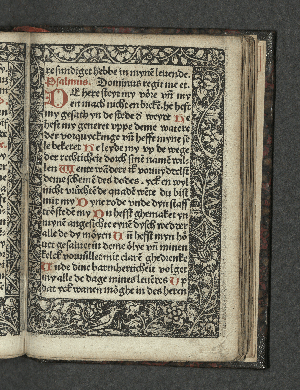 re sundiget hebbe in mynē leuende.
Psalmus. Dominus regit me et.
De here steyt my vore vñ my
en mach nicht en brekē. he heft
my gesath yn de stede d' weyde He
heft my generet vppe deme watere
der vorquyckinge vñ hefft myne se
le bekeret He leyde my vp de wege
der rechtichete dorch sinē namē wil
len Wente wādere ik yn myddelst
deme schemē des dodes. yck en wyl
nicht vrüchtē de quade wēte du bist
mit my Dyne rode vnde dyn staff
tröstede my Du hefst ghemaket yn
mynē angesichte eynē dysch wedder
alle de my möyen Du hefst myn hö
uet gesaluet in deme ölye vñ mynen
kelck vorvullet wo clar is ghedrenke
Unde dine barmherticheit volget
my alle de dage mines leuēdes Up
dat yck wanen möghe in des heren